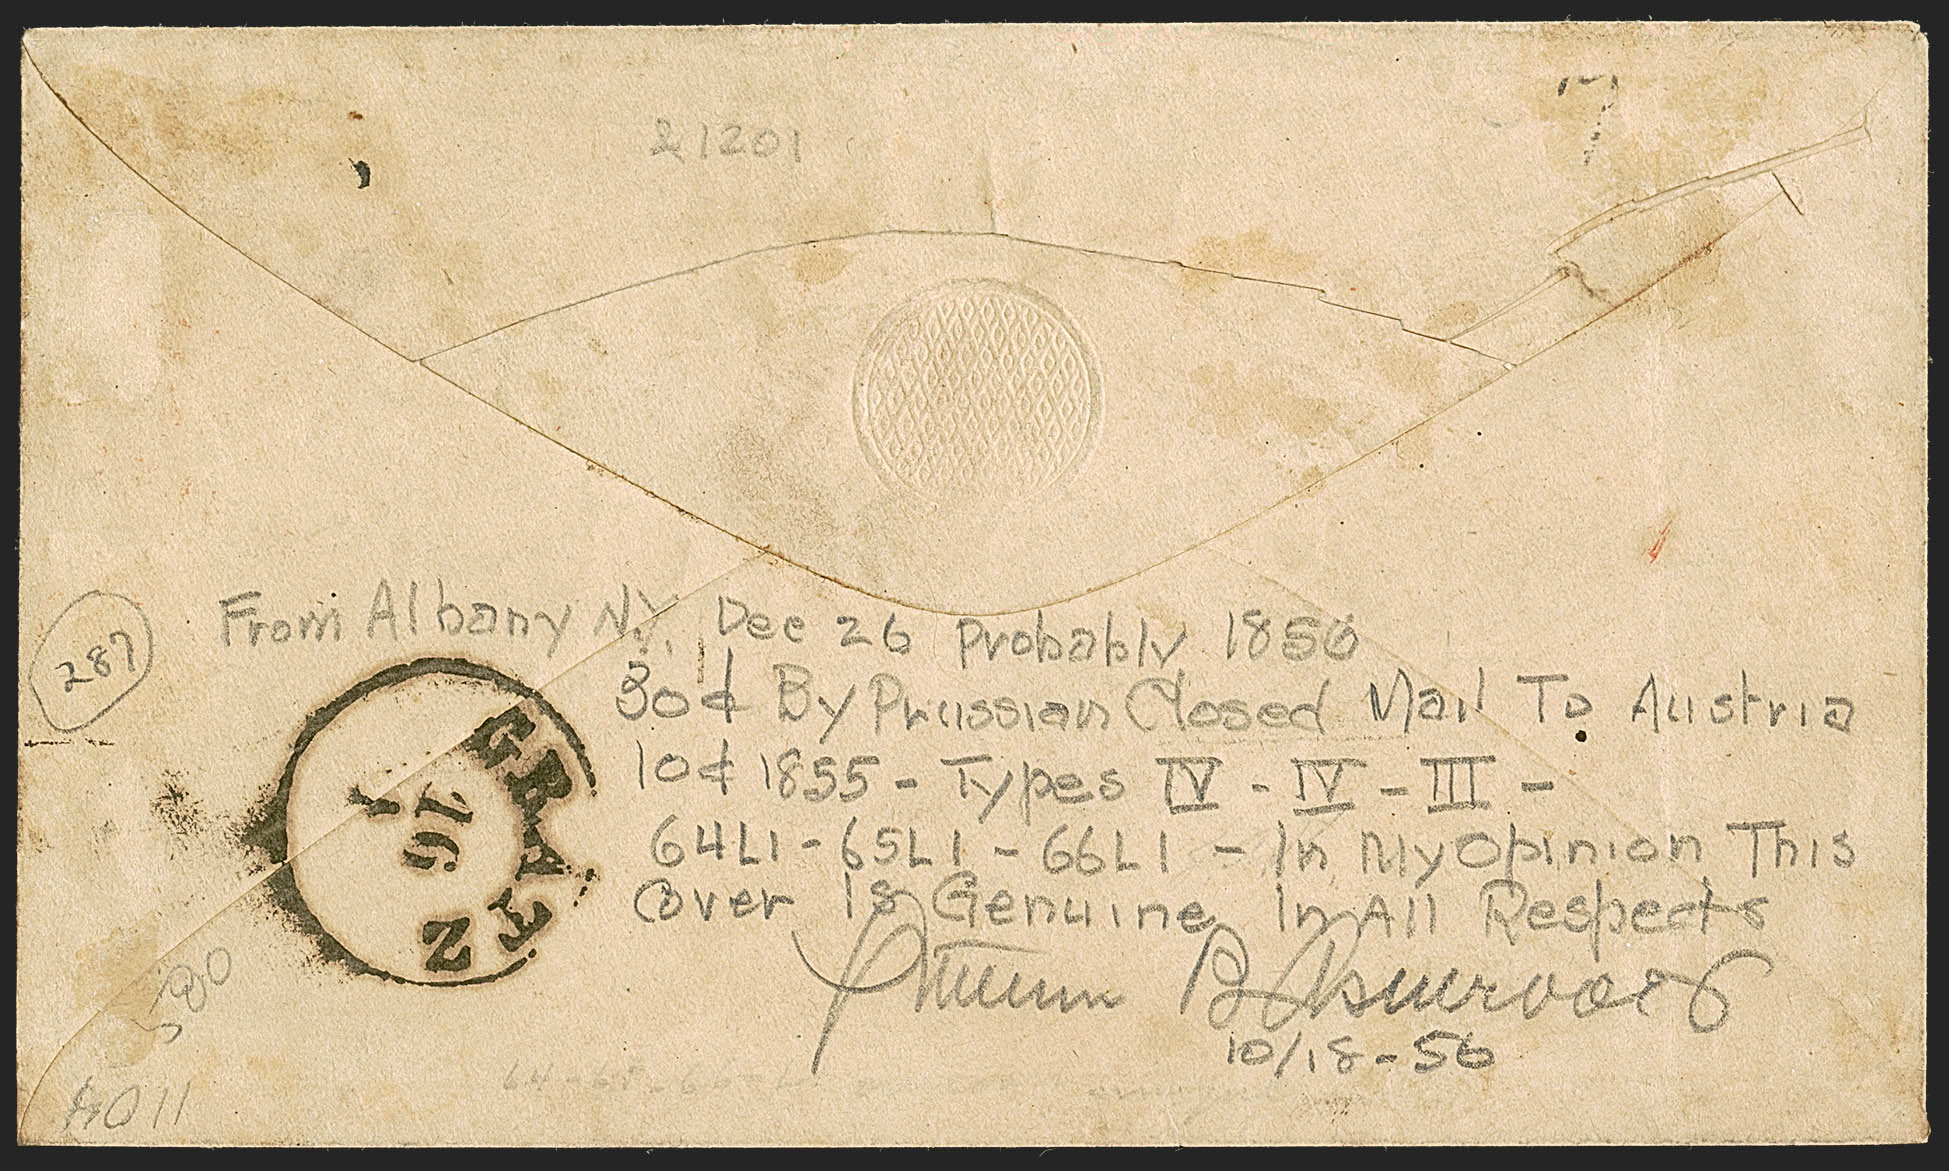 & 1201
287
From Albany N.Y. Dec 26 Probably 1856
30¢ By Prussian Closed Mail To Austria
10¢ 1855 - Types IV - IV - III -
64L1 - 65L1 - 66L1 - In My Opinion This
Cover Is Genuine In All Respects
10/18-56
GRATZ
16
1
500